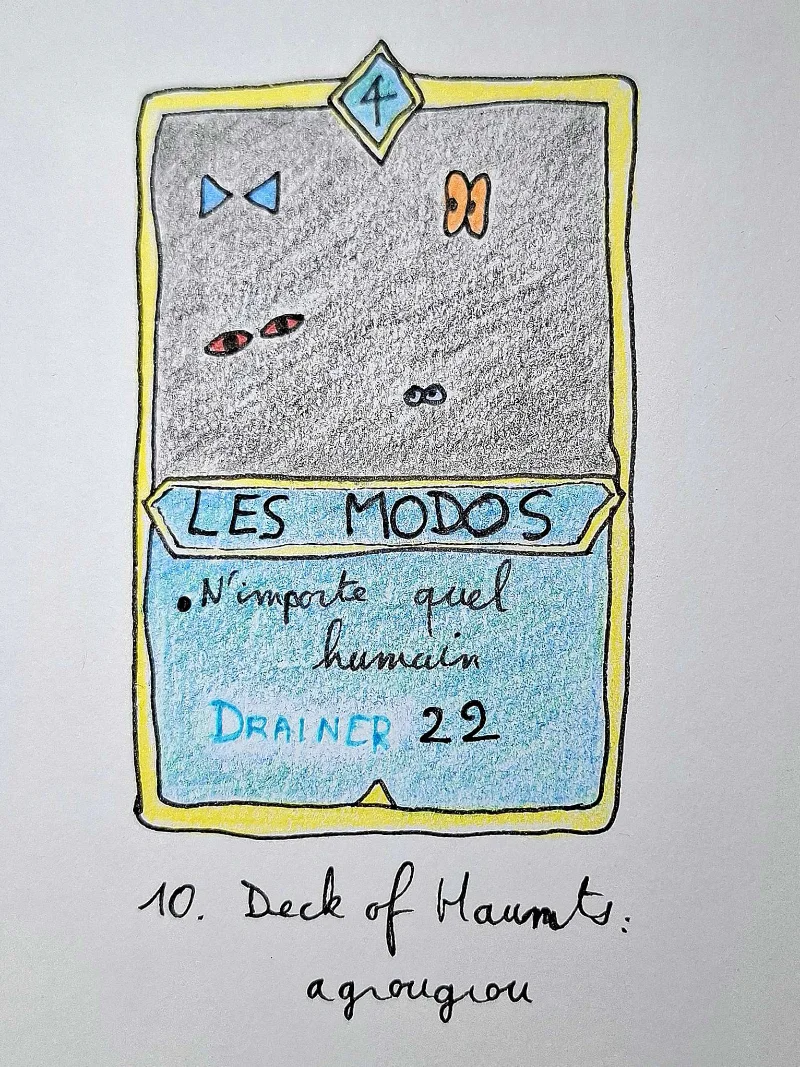 4
LES MODOS
• N'importe quel
humain
DRAINER 22
10. Deck of Haunts:
agrougrou